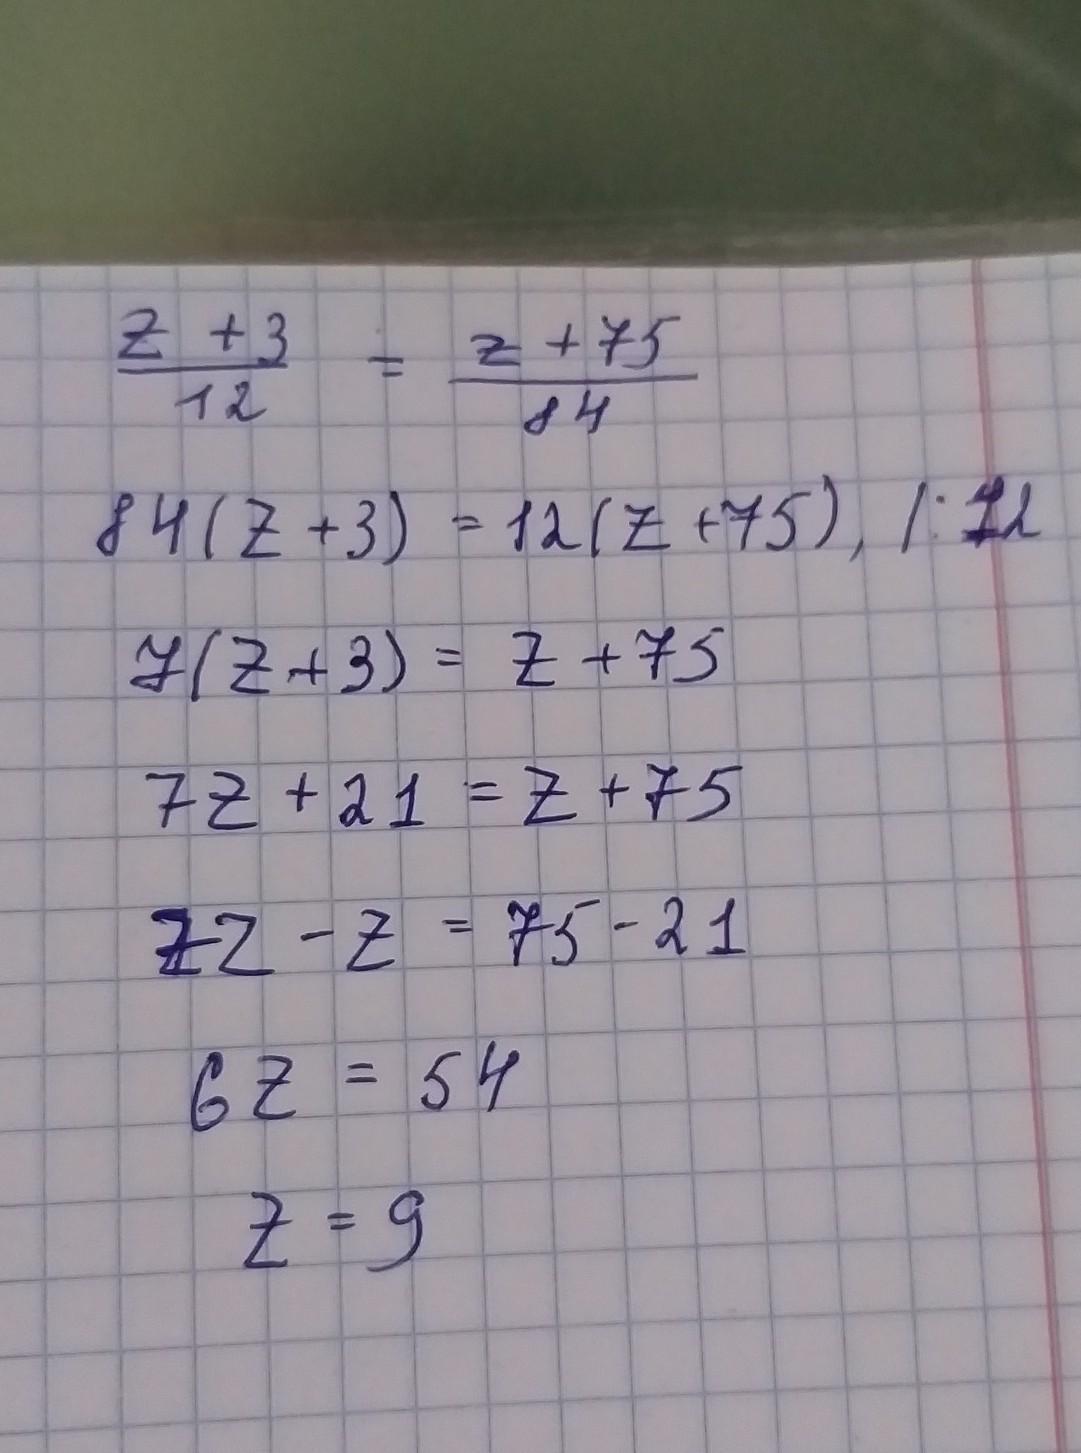 z + 3 = z + 75
12 84
84(z + 3) = 12(z + 75), /: 12
7(z + 3) = z + 75
7z + 21 = z + 75
7z - z = 75 - 21
6z = 54
z = 9